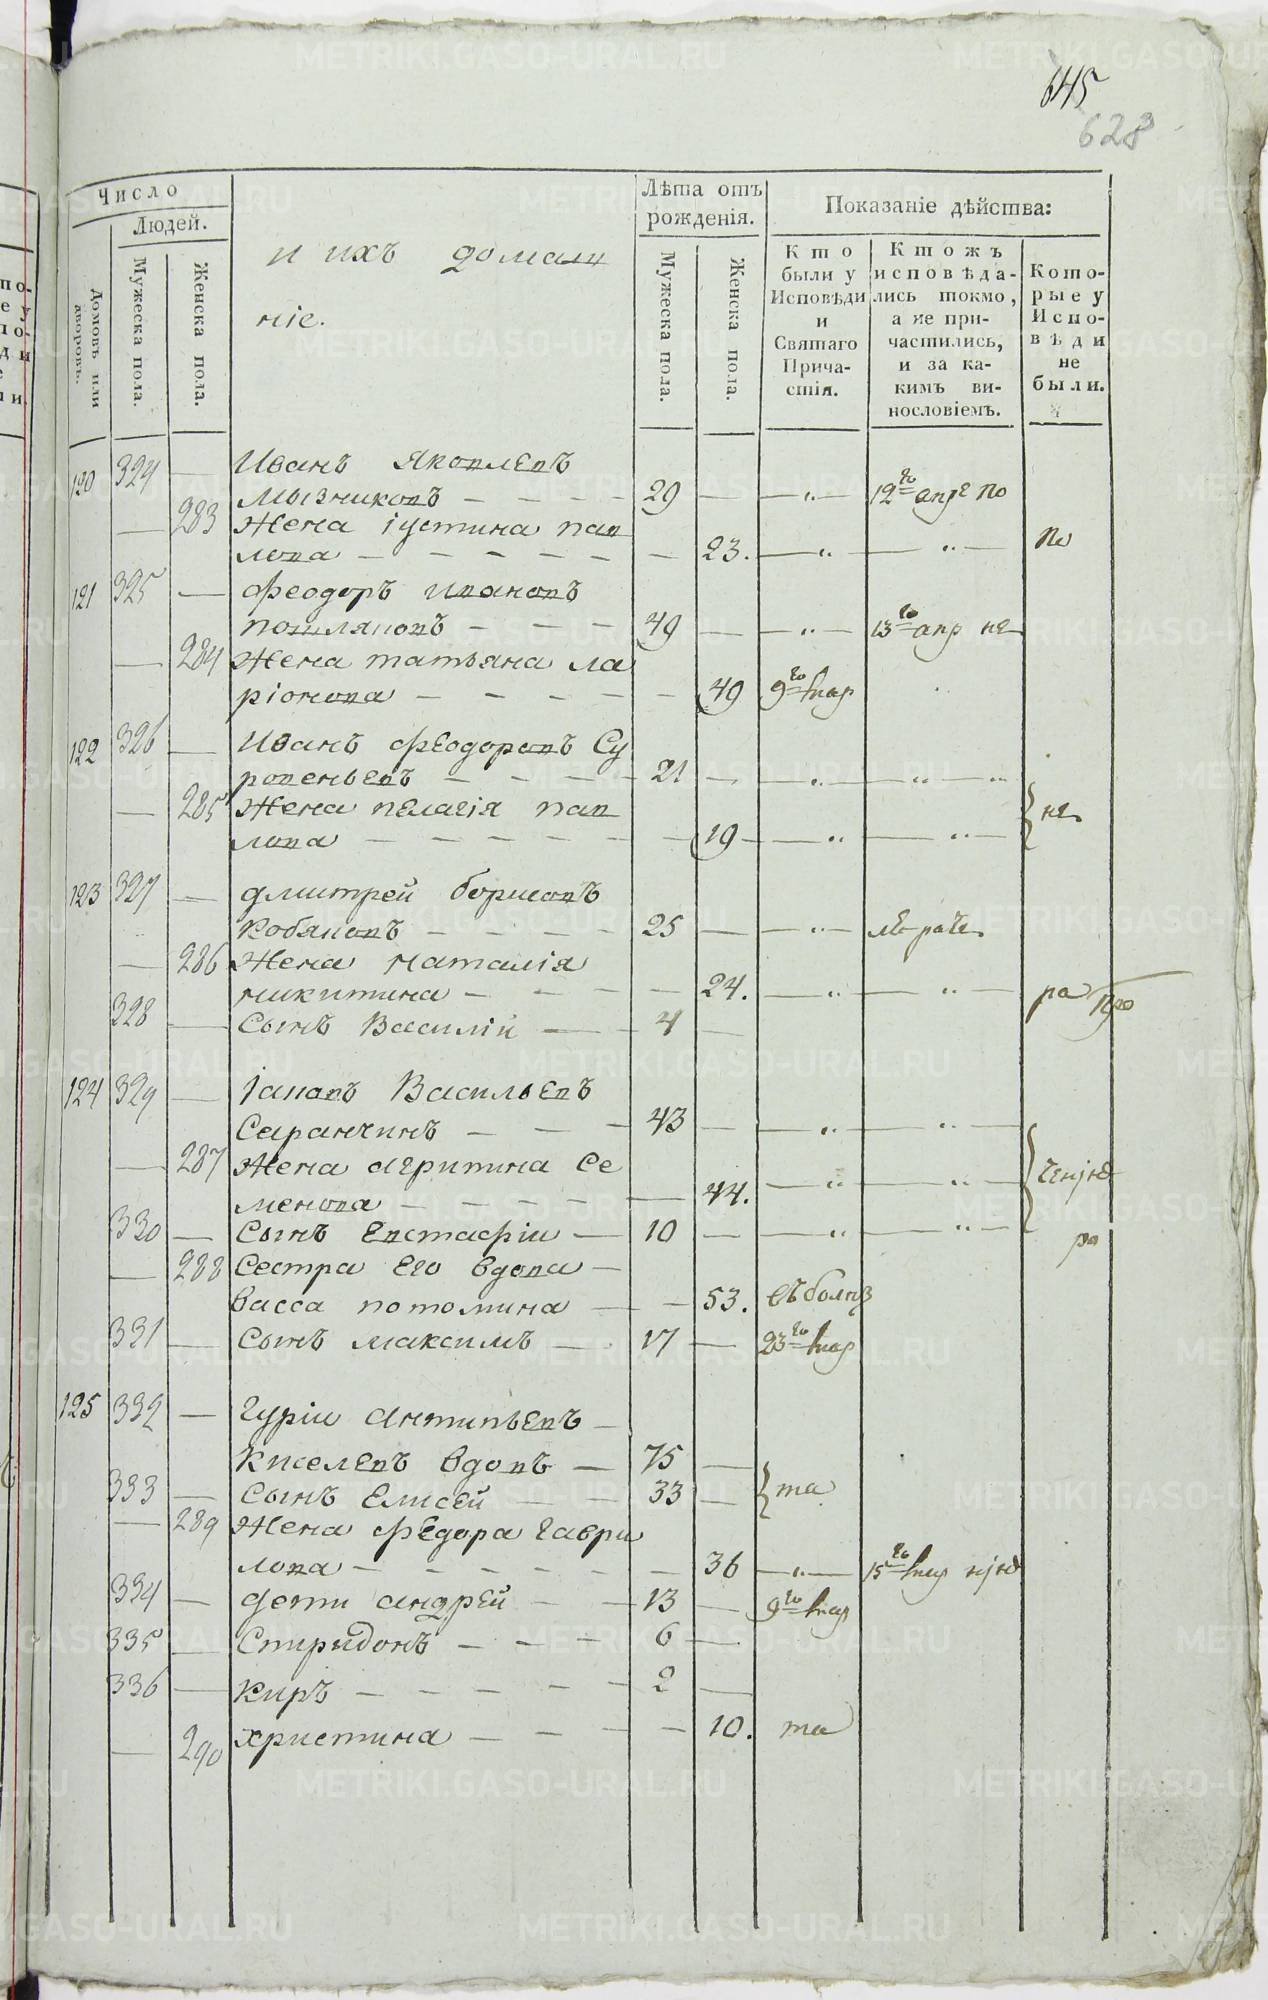 645
628
Число
Людей.
Домовъ или дворовъ.
Мужеска пола.
Женска пола.
и ихъ домашн
ніе.
Лѣта отъ рожденія.
Мужеска пола.
Женска пола.
Показаніе дѣйства:
Кто были у Исповѣди и Святаго Причастія.
Ктожъ исповѣдались токмо, а не причастились, и за какимъ винословіемъ.
Которые у Исповѣди не были.
120 324 — Иванъ Яковлевъ
Мызниковъ — 29 — — „ — 12го апре по
— 283 Жена іустина пав
лова — 23. — „ — „ — по
121 325 — феодоръ ивановъ
пошляковъ — 49 — — „ — 13го апр не
— 284 Жена татьяна ла
ріонова — 49 9го мар
122 326 — Иванъ феодоровъ Су
ровеньевъ — 21 — — „ — „
— 285 Жена пелагія пав
лова — 19 — „ — „ — не
123 327 — дмитрей борисовъ
Кобяковъ — 25 — — „ —
— 286 Жена наталія
никитина — 24. — „ — „ — ра
328 — Сынъ Василій — 4 —
124 329 — Іаковъ Васильевъ
Саранчинъ — 43 — — „ — „ —
— 287 Жена агрипина Се
менова — 44. — „ — „ —
330 — Сынъ Евстафіи — 10 — — „ — „ — ра
— 288 Сестра Его вдова —
васса потомина — 53. въ болез
331 — Сынъ максимъ — 17 — 23го мар
125 332 — Гуріи антипьевъ —
Киселевъ вдовъ — 75 —
333 — Сынъ Елисей — 33 — та
— 289 Жена феодора гаври
лова — 36 — „ — 15го мар
334 — дети андрей — 13 — 9го мар
335 — Спиридонъ — 6 —
336 — Киръ — 2 —
— 290 христина — 10. та
METRIKI.GASO-URAL.RU